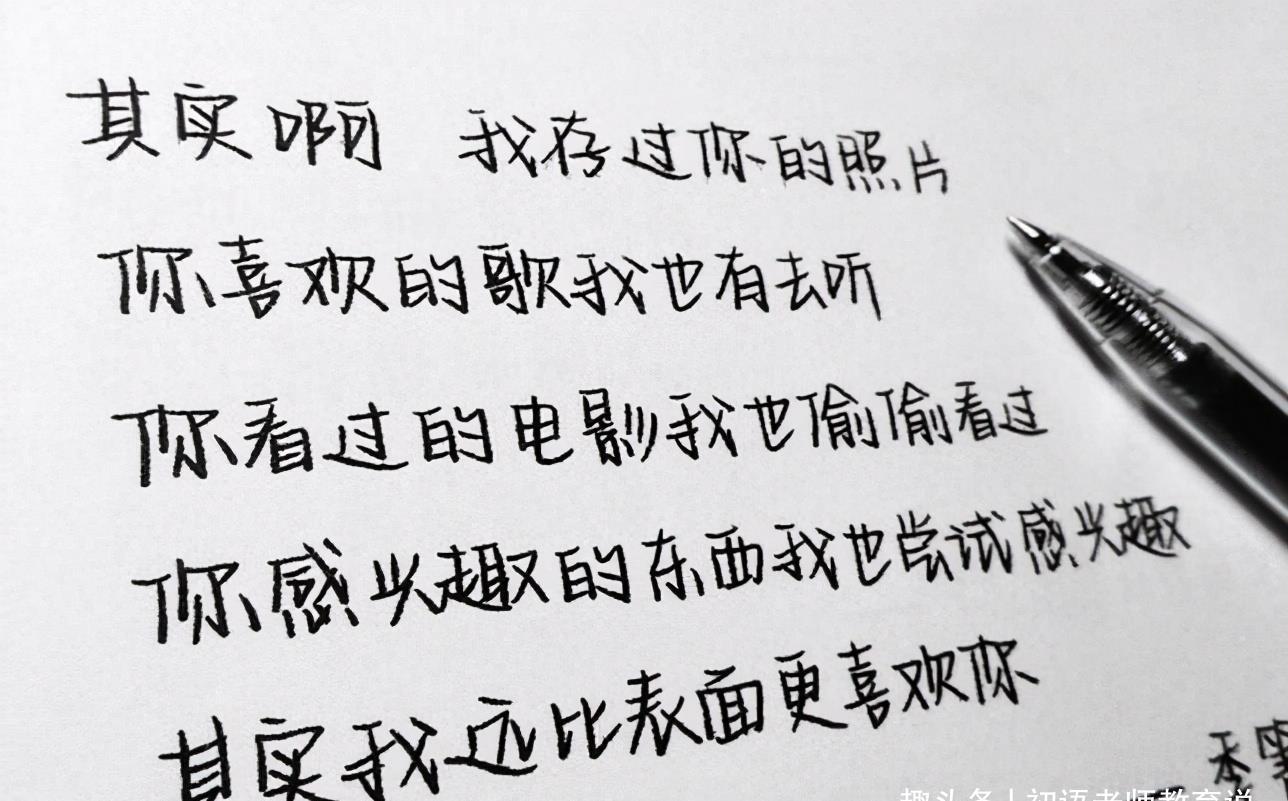 其实啊 我存过你的照片
你喜欢的歌我也有去听
你看过的电影我也偷偷看过
你感兴趣的东西我也尝试感兴趣
其实我远比表面更喜欢你
趣头条 | 初语老师教育说